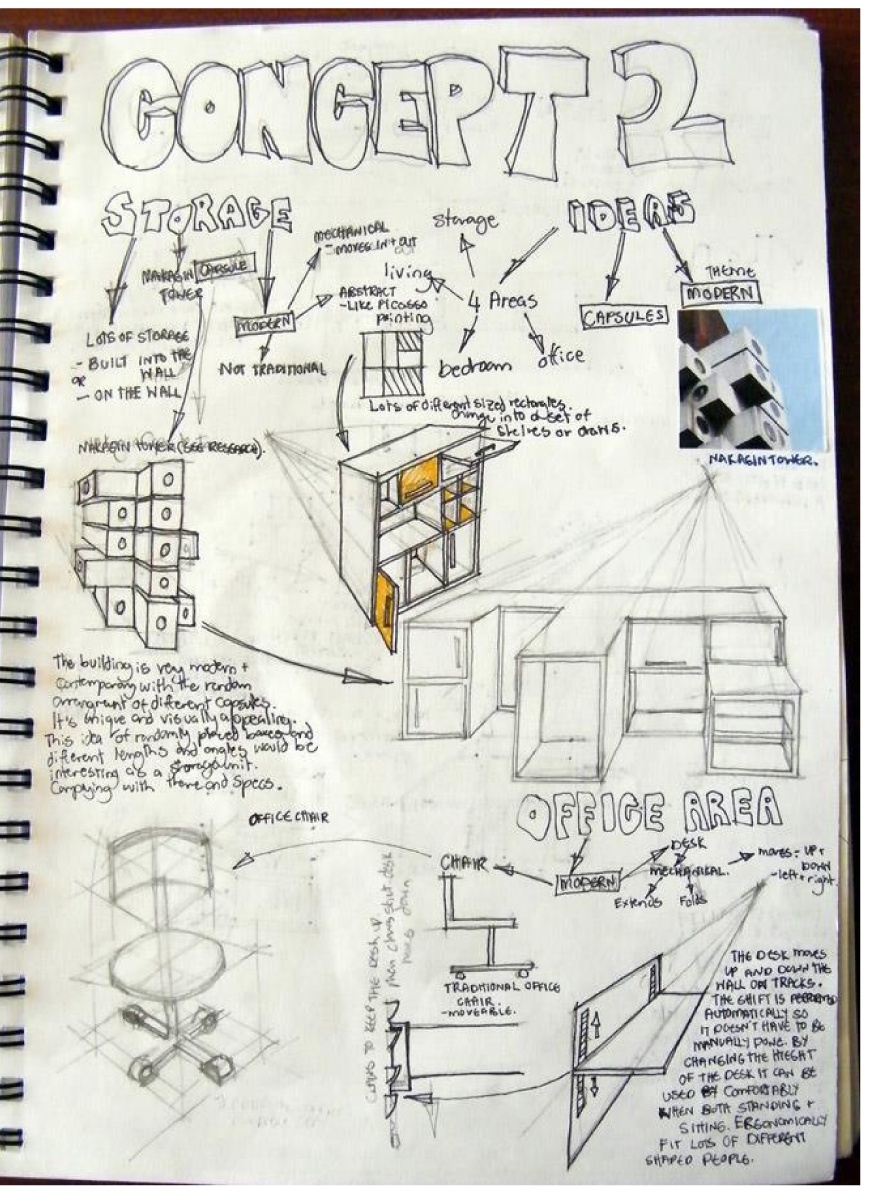 CONCEPT 2
STORAGE
IDEAS
MECHANICAL
- MOVES IN + OUT
storage
NAKAGIN CAPSULE
TOWER
living
ABSTRACT
- LIKE PICASSO
painting
4 Areas
THEME
MODERN
MODERN
CAPSULES
LOTS OF STORAGE
- BUILT INTO THE
WALL
or
- ON THE WALL
NOT TRADITIONAL
bedroom
office
Lots of different sized rectangles.
change into a set of
shelves or draws.
NAKAGIN TOWER (SEE RESEARCH).
NAKAGIN TOWER.
The building is very modern +
Contemporary with the random
arrangment of different capsules.
It's unique and visually appealing.
This idea of randomly placed boxes and
different lengths and angles would be
interesting as a storage unit.
Complying with theme and Specs.
OFFICE AREA
OFFICE CHAIR
CHAIR
MODERN
DESK
MECHANICAL.
moves - UP +
DOWN
- left + right.
Extends
Folds
TRADITIONAL OFFICE
CHAIR.
- MOVEABLE.
CLAWS TO KEEP THE DESK UP
then claws shut desk
moves down
THE DESK moves
UP AND DOWN THE
WALL ON TRACKS.
THE SHIFT IS PERFORMED
AUTOMATICALLY SO
IT DOESN'T HAVE TO BE
MANUALLY DONE. BY
CHANGING THE HIEGHT
OF THE DESK IT CAN BE
USED BY COMFORTABLY
WHEN BOTH STANDING +
SITTING. ERGONOMICALLY
FIT LOTS OF DIFFERENT
SHAPED PEOPLE.